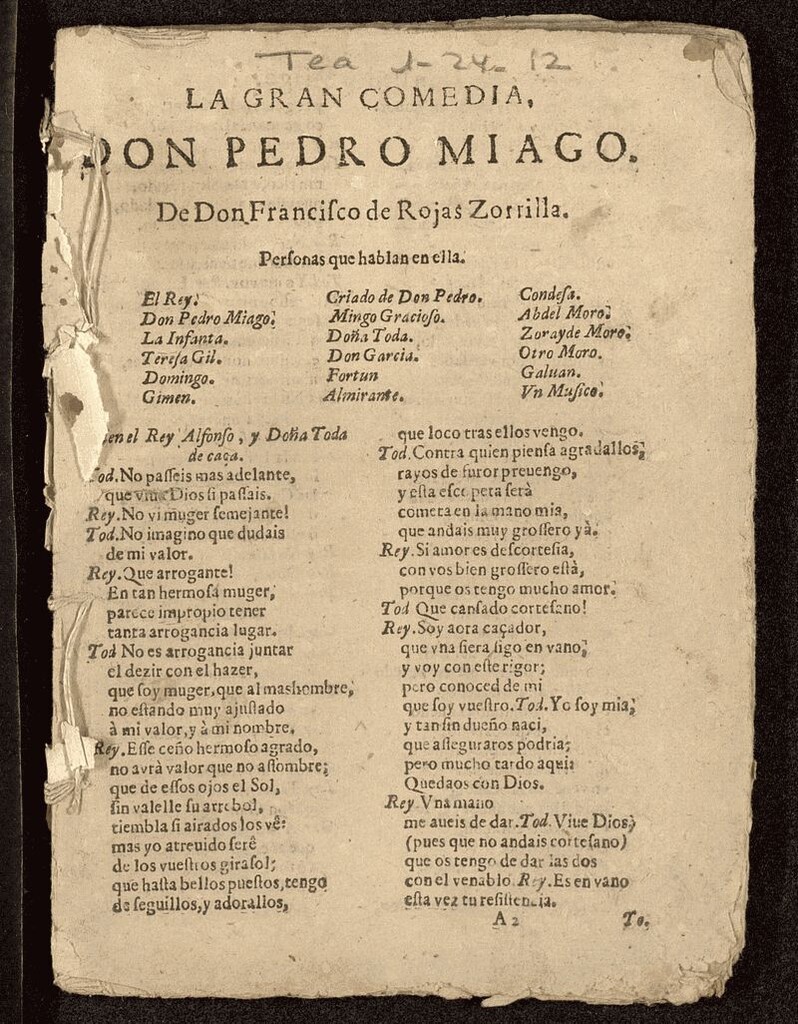 Tea 1-24-12
LA GRAN COMEDIA,
DON PEDRO MIAGO.
De Don Franciſco de Rojas Zorrilla.
Perſonas que hablan en ella.
El Rey.
Don Pedro Miago.
La Infanta.
Tereſa Gil.
Domingo.
Gimen.
Criado de Don Pedro.
Mingo Gracioſo.
Doña Toda.
Don Garcia.
Fortun
Almirante.
Condeſa.
Abdel Moro.
Zorayde Moro.
Otro Moro.
Galuan.
Vn Muſico.
en el Rey Alfonſo, y Doña Toda
de caça.
Tod. No paſſeis mas adelante,
que viue Dios ſi paſſais.
Rey. No vi muger ſemejante!
Tod. No imagino que dudais
de mi valor.
Rey. Que arrogante!
En tan hermoſa muger,
parece impropio tener
tanta arrogancia lugar.
Tod No es arrogancia juntar
el dezir con el hazer,
que ſoy muger, que al mas hombre,
no eſtando muy ajuſtado
à mi valor, y à mi nombre.
Rey. Eſſe ceño hermoſo agrado,
no avrà valor que no aſſombre;
que de eſſos ojos el Sol,
ſin valelle ſu arrebol,
tiembla ſi airados los vè:
mas yo atreuido ſerè
de los vueſtros giraſol;
que haſta bellos pueſtos, tengo
de ſeguillos, y adorallos,
que loco tras ellos vengo.
Tod. Contra quien pienſa agradallos,
rayos de furor preuengo,
y eſta eſcopeta ſerà
cometa en la mano mia,
que andais muy groſſero yà.
Rey. Si amor es deſcorteſia,
con vos bien groſſero eſtà,
porque os tengo mucho amor.
Tod Que canſado corteſano!
Rey. Soy aora caçador,
que vna fiera ſigo en vano,
y voy con eſte rigor;
pero conoced de mi
que ſoy vueſtro. Tod. Yo ſoy mia,
y tan ſin dueño naci,
que aſſeguraros podria;
pero mucho tardo aqui:
Quedaos con Dios.
Rey. Vna mano
me aueis de dar. Tod. Viue Dios,
(pues que no andais corteſano)
que os tengo de dar las dos
con el venablo. Rey. Es en vano
eſta vez tu reſiſtencia.
A 2
To.